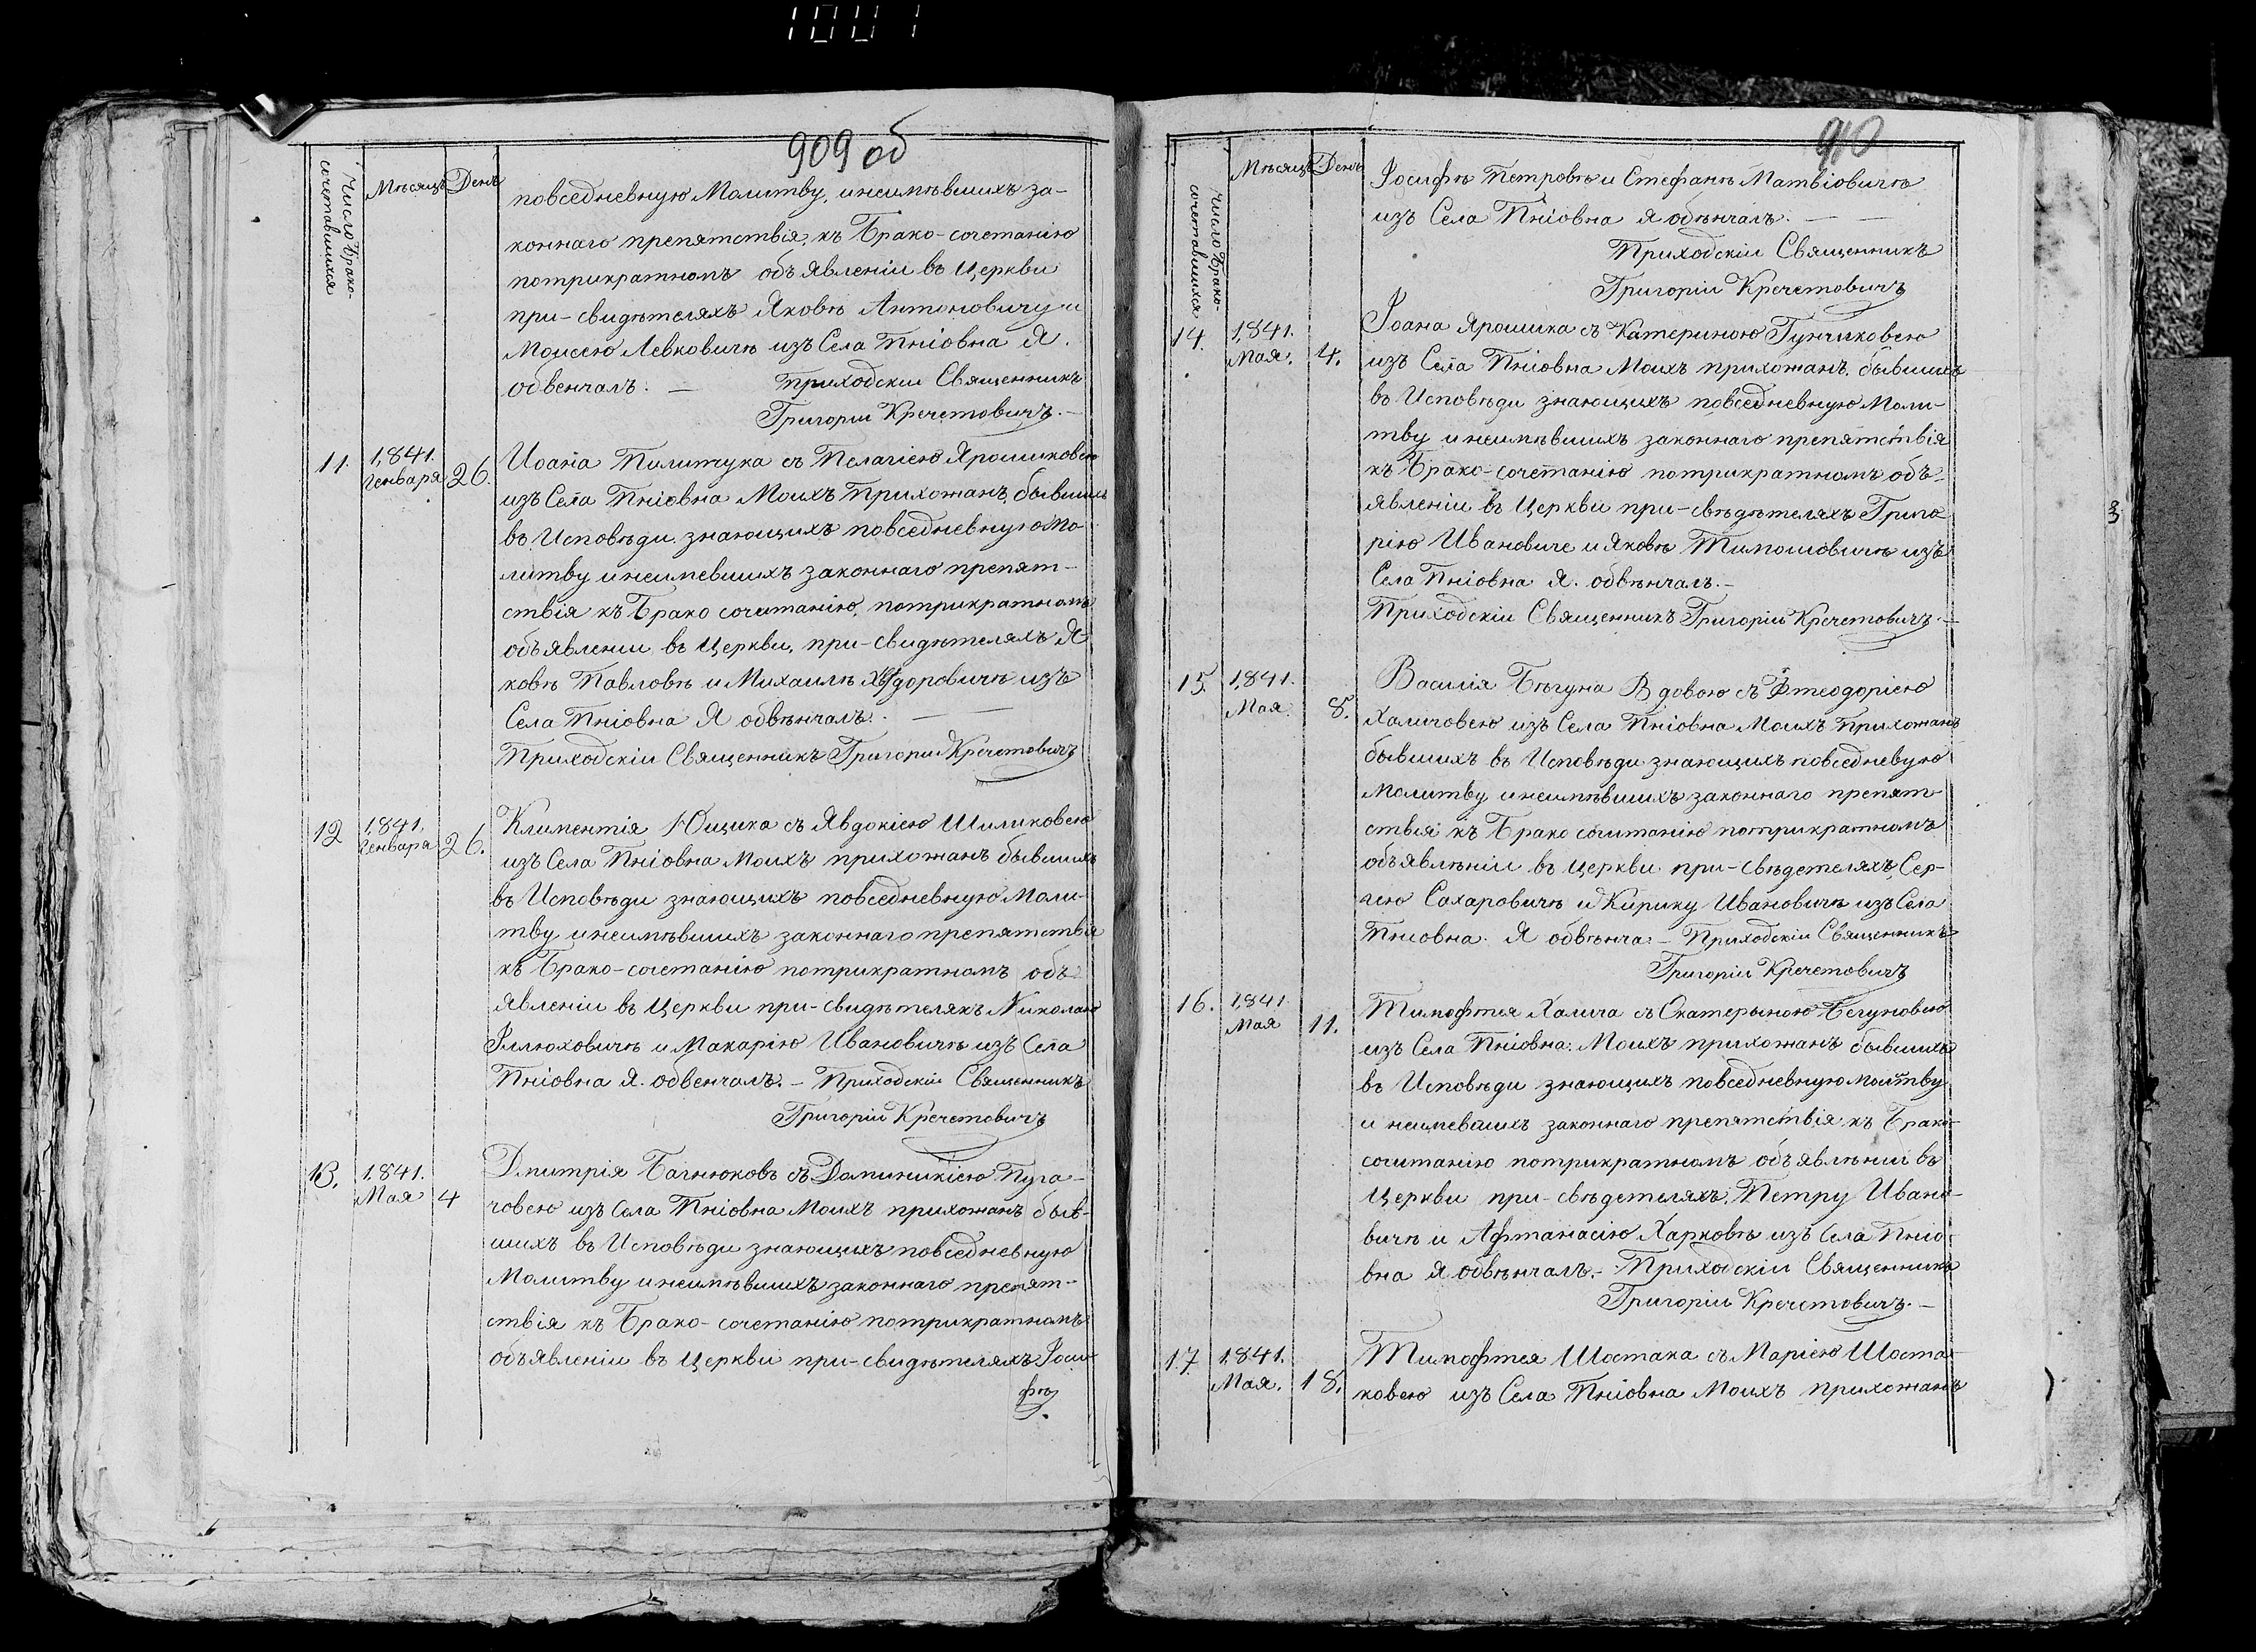 1001
909 об
Число Брако-
сочетавшихся
Мѣсяцъ
День
повседневную Молитву, инеимѣвшихъ за-
коннаго препятствія, къ Брако-сочетанію
потрикратномъ объявленіи въ Церкви
при-свидѣтеляхъ Яковѣ Антоновичу и
Моисею Левковичѣ изъ Села Пніовна Я.
обвенчалъ. — Приходскіи Священникъ
Григоріи Кречетовичъ. —
11. 1,841. Генваря 26.
Иоана Пилитука съ Пелагіею Ярошиковею
изъ Села Пніовна Моихъ Прихожанъ, бывшихъ
въ Исповѣди, знающихъ повседневную Мо-
литву инеимевшихъ законнаго препят-
ствія къ Брако сочитанію, потрикратномъ
объявлении въ Церкви, при-свидѣтеляхъ Я-
ковѣ Павловѣ и Михаилѣ доровичѣ изъ
Села Пніовна Я обвѣнчалъ. — —
Приходскіи Священникъ Григории Кречетовичъ
12 1,841. Генваря 26.
Климентія Ющика съ Явдокіею Шиликовею
изъ Села Пніовна Моихъ прихожанъ бывшихъ
въ Исповѣди знающихъ повседневную Моли-
тву инеимѣвшихъ законнаго препятствія
къ Брако-сочетанію потрикратномъ объ-
явленіи въ Церкви при-свидѣтеляхъ Николаю
Иллюховичѣ и Макарію Ивановичѣ изъ Села
Пніовна Я. обвенчалъ. — Приходскіи Священникъ
Григоріи Кречетовичъ
13. 1,841. Мая 4
Дмитрія Багнюковъ съ Доминикіею Пуга-
човею изъ Села Пніовна Моихъ прихожанъ быв-
шихъ въ Исповѣди знающихъ повседневную
Молитву инеимѣвшихъ законнаго препят-
ствія къ Брако-сочетанію потрикратномъ
объявленіи въ Церкви при-свидѣтеляхъ Іоси-
фѣ
910
Число Брако-
сочетавшихся
Мѣсяцъ
День
Іосифѣ Петровѣ и Стефанѣ Матвіовичѣ
изъ Села Пніовна я обѣнчалъ. — —
Приходскіи Священникъ
Григоріи Кречетовичъ
14. 1,841. Мая. 4.
Іоана Ярошика съ Катериною Гунчиковею
изъ Села Пніовна Моихъ прихожанъ. бывшихъ
въ Исповѣди знающихъ повседневную Моли-
тву инеимѣвшихъ законнаго препятствія
къ Брако-сочетанію потрикратномъ объ-
явленіи въ Церкви при-свѣдѣтеляхъ Григо-
рію Ивановиче и Яковѣ Тимошовичѣ изъ
Села Пніовна Я. обвѣнчалъ. —
Приходскіи Священникъ Григоріи Кречетовичъ. —
15. 1,841. Мая. 8.
Василія Бѣгуна Вдовою съ Фтеодорією
Халичовею изъ Села Пніовна Моихъ Прихожанъ
бывшихъ въ Исповѣди знающихъ повседневую
Молитву инеимѣвшихъ законнаго препят-
ствія къ Брако сочитанію потрикратномъ
объявлѣніи въ Церкви при-свѣдетеляхъ, Сер-
гею Сахаровичѣ и Кирику Ивановичѣ изъ Села
Пніовна. Я обвѣнча. — Приходскіи Священникъ
Григоріи Кречетовичъ
16. 1,841 Мая 11.
Тимофтея Халича съ Окатерыною Бегуновею
изъ Села Пніовна. Моихъ прихожанъ бывшихъ
въ Исповѣди знающихъ повседневную молитву
и неимевшихъ законнаго препятствія къ Брако-
сочитанію потрикратномъ объявлѣнии въ
Церкви при-свѣдетеляхъ, Петру Ивано-
вичѣ и Афтанасію Харковѣ изъ Села Пніо-
вна Я обвѣнчалъ. — Приходскіи Священникъ
Григоріи Кречетовичъ. —
17. 1,841. Мая. 18.
Тимофтея Шостака съ Марією Шоста-
ковею изъ Села Пніовна Моихъ прихожанъ